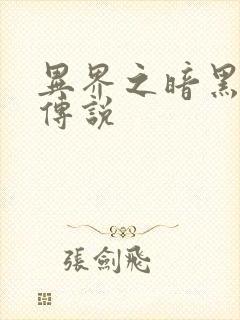 異界之暗黑
傳說
張劍飛